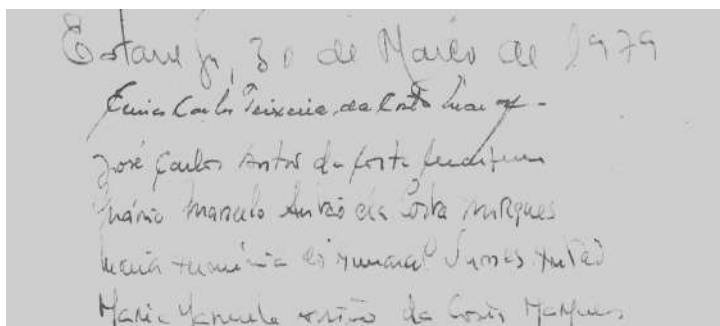 Estarreja, 30 de Março de 1979
Carlos Teixeira da Costa
José Carlos da Costa
Mário Marcelo Antão da Costa Marques
Maria do Amaral Antão
Maria Manuela Antão da Costa Marques